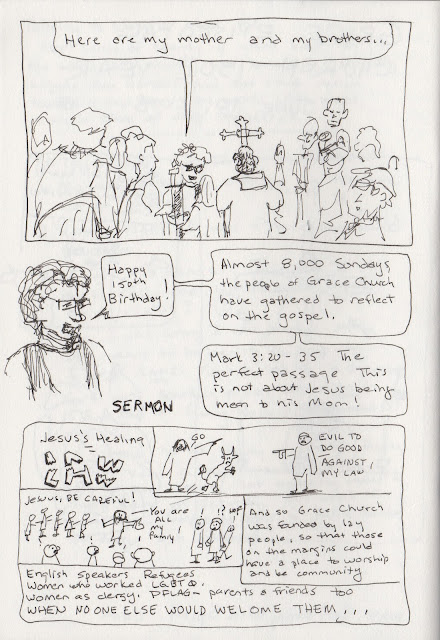 Here are my mother and my brothers...
Happy
150th
Birthday!
Almost 8,000 Sundays
the people of Grace Church
have gathered to reflect
on the gospel.
Mark 3:20-35 The
perfect passage This
is not about Jesus being
mean to his Mom!
SERMON
Jesus's Healing
GO
EVIL TO
DO GOOD
AGAINST
MY LAW
JESUS, BE CAREFUL!
You are
ALL
my
family!
!?
And so Grace Church
was founded by lay
people, so that those
on the margins could
have a place to worship
and be community
English speakers Refugees
Women who worked LGBTQ,
women as clergy. PFLAG- parents & friends too
WHEN NO ONE ELSE WOULD WELOME THEM...